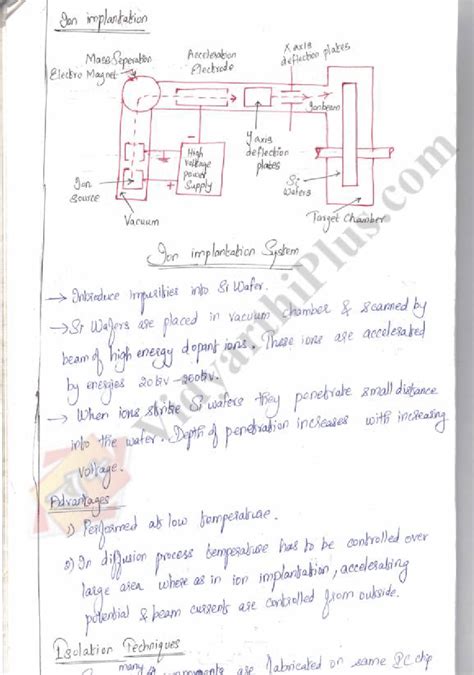 Ion implantation
Mass Seperation
Electro Magnet
Acceleration
Electrode
X axis
deflection plates
Ion beam
Y axis
deflection
plates
High
voltage
power
Supply
Ion
source
Vacuum
Si
Wafers
Target Chamber
Ion implantation System
→ Introduce impurities into Si Wafer.
→ Si Wafers are placed in vacuum chamber & scanned by
beam of high energy dopant ions. These ions are accelerated
by energies 20kv - 250kv.
→ When ions strike Si wafers they penetrate small distance
into the wafer. Depth of penetration increases with increasing
voltage.
Advantages
1) Performed at low temperature.
2) In diffusion process temperature has to be controlled over
large area where as in ion implantation, accelerating
potential & beam currents are controlled from outside.
Isolation Techniques
many
are fabricated on same IC chip
VidyarthiPlus.com